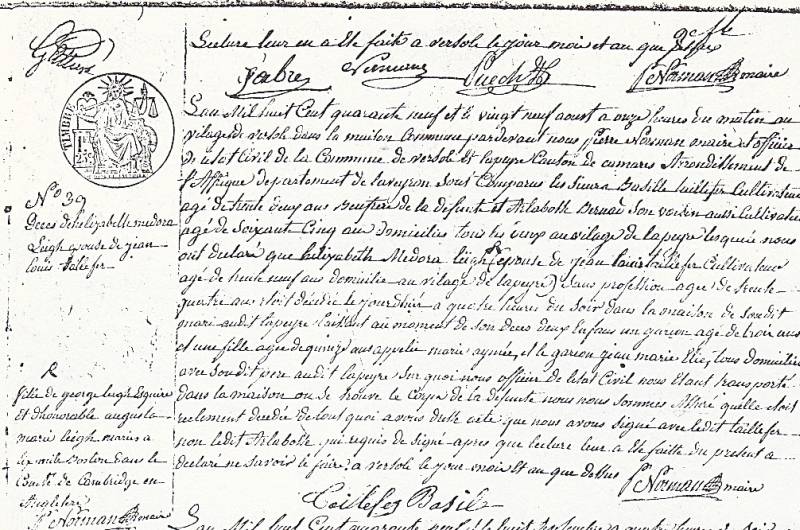 Lecture leur en a Eté faite a versols le jour mois et an que dessus
Fabre Normane Puech P. Norman maire
TIMBRE
1F
25c
N° 39
Deces de Elizabette medora
Leigh epouse de jean
louis tailefer
L'an Mil huit Cent quarante neuf et le vingt neuf aoust a onze heures du matin au
village de versols dans la maison Commune pardevant nous Pierre Norman maire et officier
de l'etat Civil de la Commune de versols et lapeyre Canton de camares arrondissement de
St affrique departement de laveyron Sont Comparus les sieurs Basille taillefer Cultivateur
agé de trente deux ans Beaufrere de la defunte et Bernad son voisin aussi Cultivateur
agé de soixante Cinq ans Domiciliés tous les deux au village de lapeyre lesquels nous
ont declaré que Elizabeth Medora Leigh épouse de jean louis taillefer Cultivateur
agé de trente neuf ans domicilié au village de lapeyre sans profession agée de trente
quatre ans etoit decedée le jour d'hier a quatre heures du soir dans la maison de son dit
mari audit lapeyre laissant au moment de son deces deux enfans un garçon agé de trois ans
et une fille agée de quinze ans appelée marie, et le garçon jean marie Elie, tous domiciliés
avec son dit pere audit lapeyre sur quoi nous officier de l'etat Civil nous Etant transporté
dans la maison ou se trouve le Corps de la defunte nous nous sommes Assuré quelle etoit
reelement decedée de tout quoi avons dressé acte que nous avons signé avec ledit taillefer
non ledit qui requis de signé apres que lecture leur a Eté faitte du present a
declaré ne savoir le faire a versols le jour mois et an que dessus P. Norman maire
Tailefer Basile
fille de george Leigh Esquire
Et dhonorable augusta
marie leigh mariés a
six mile Bostom dans le
Comté de Cambridge en
Angletere
P. Norman maire
L'an Mil huit Cent quarante neuf et le huit Septembre a quatre heures